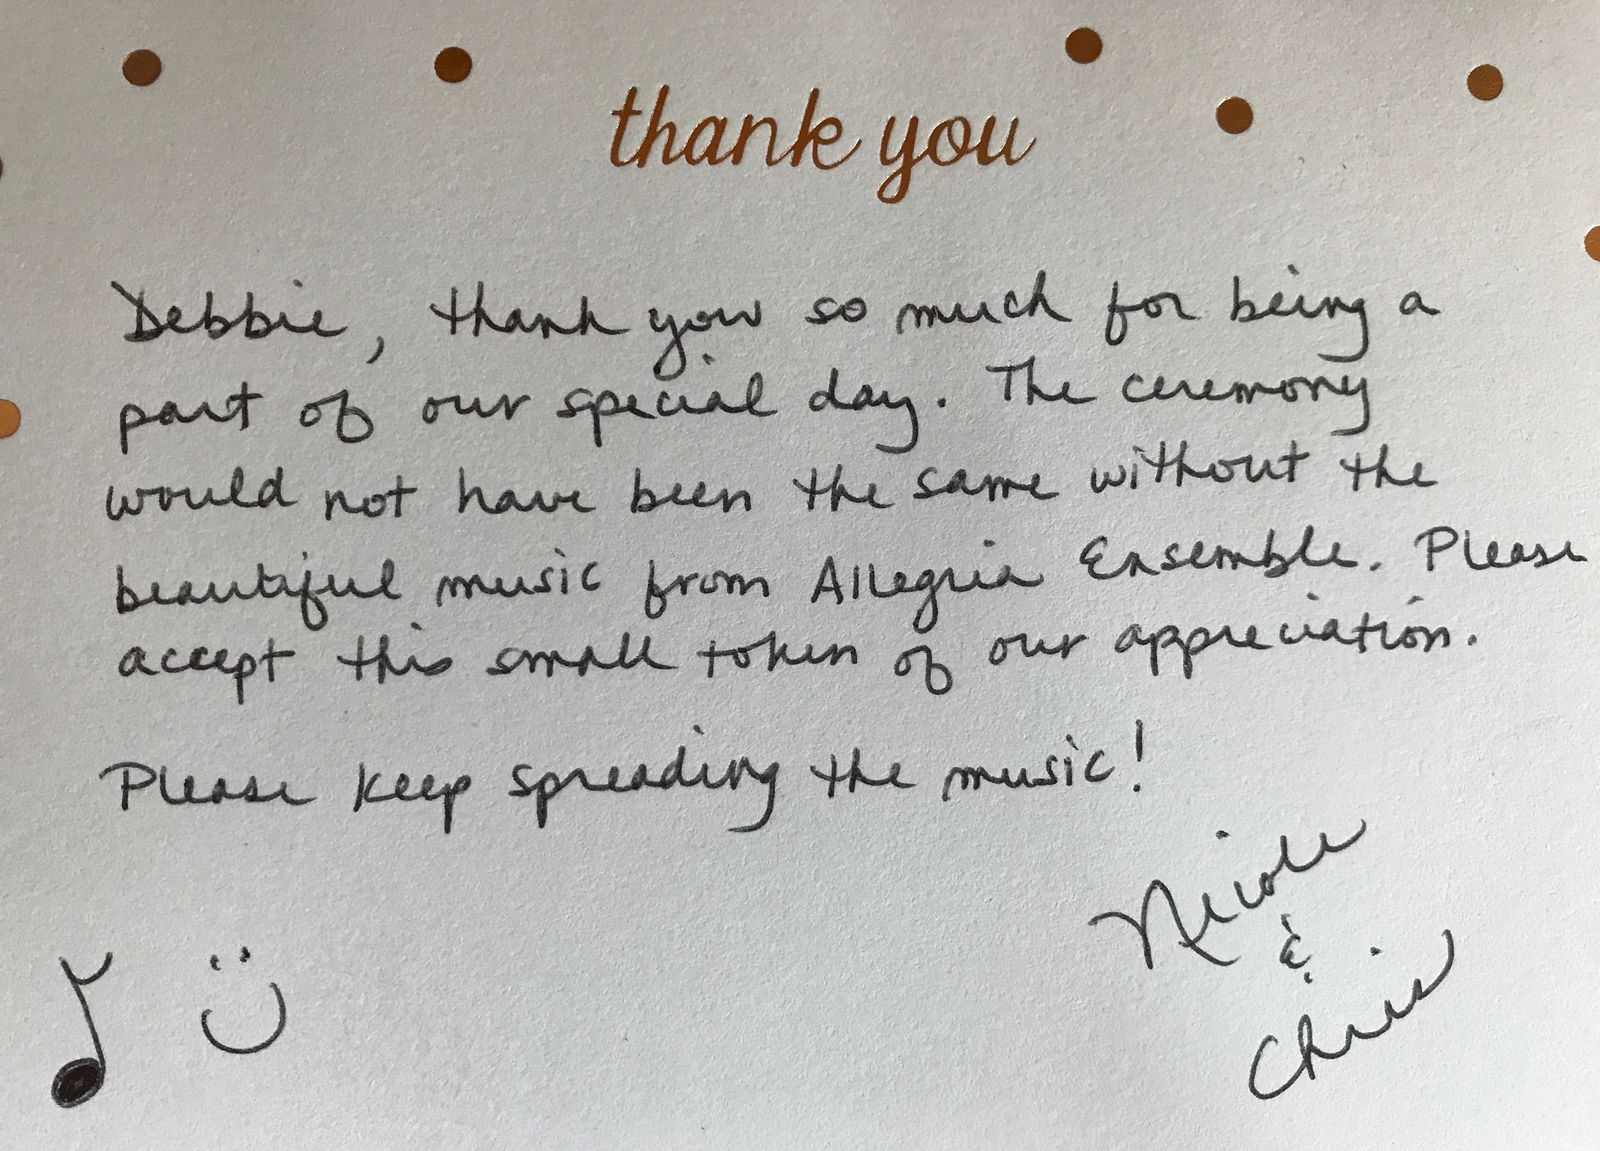 thank you
Debbie, thank you so much for being a
part of our special day. The ceremony
would not have been the same without the
beautiful music from Allegria Ensemble. Please
accept this small token of our appreciation.
Please keep spreading the music!
Nicole
&
Chris